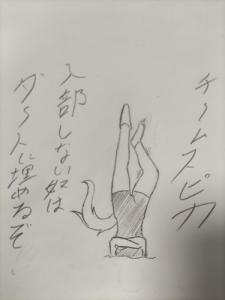 チームスピカ
入部しない奴は
ダートに埋めるぞ。